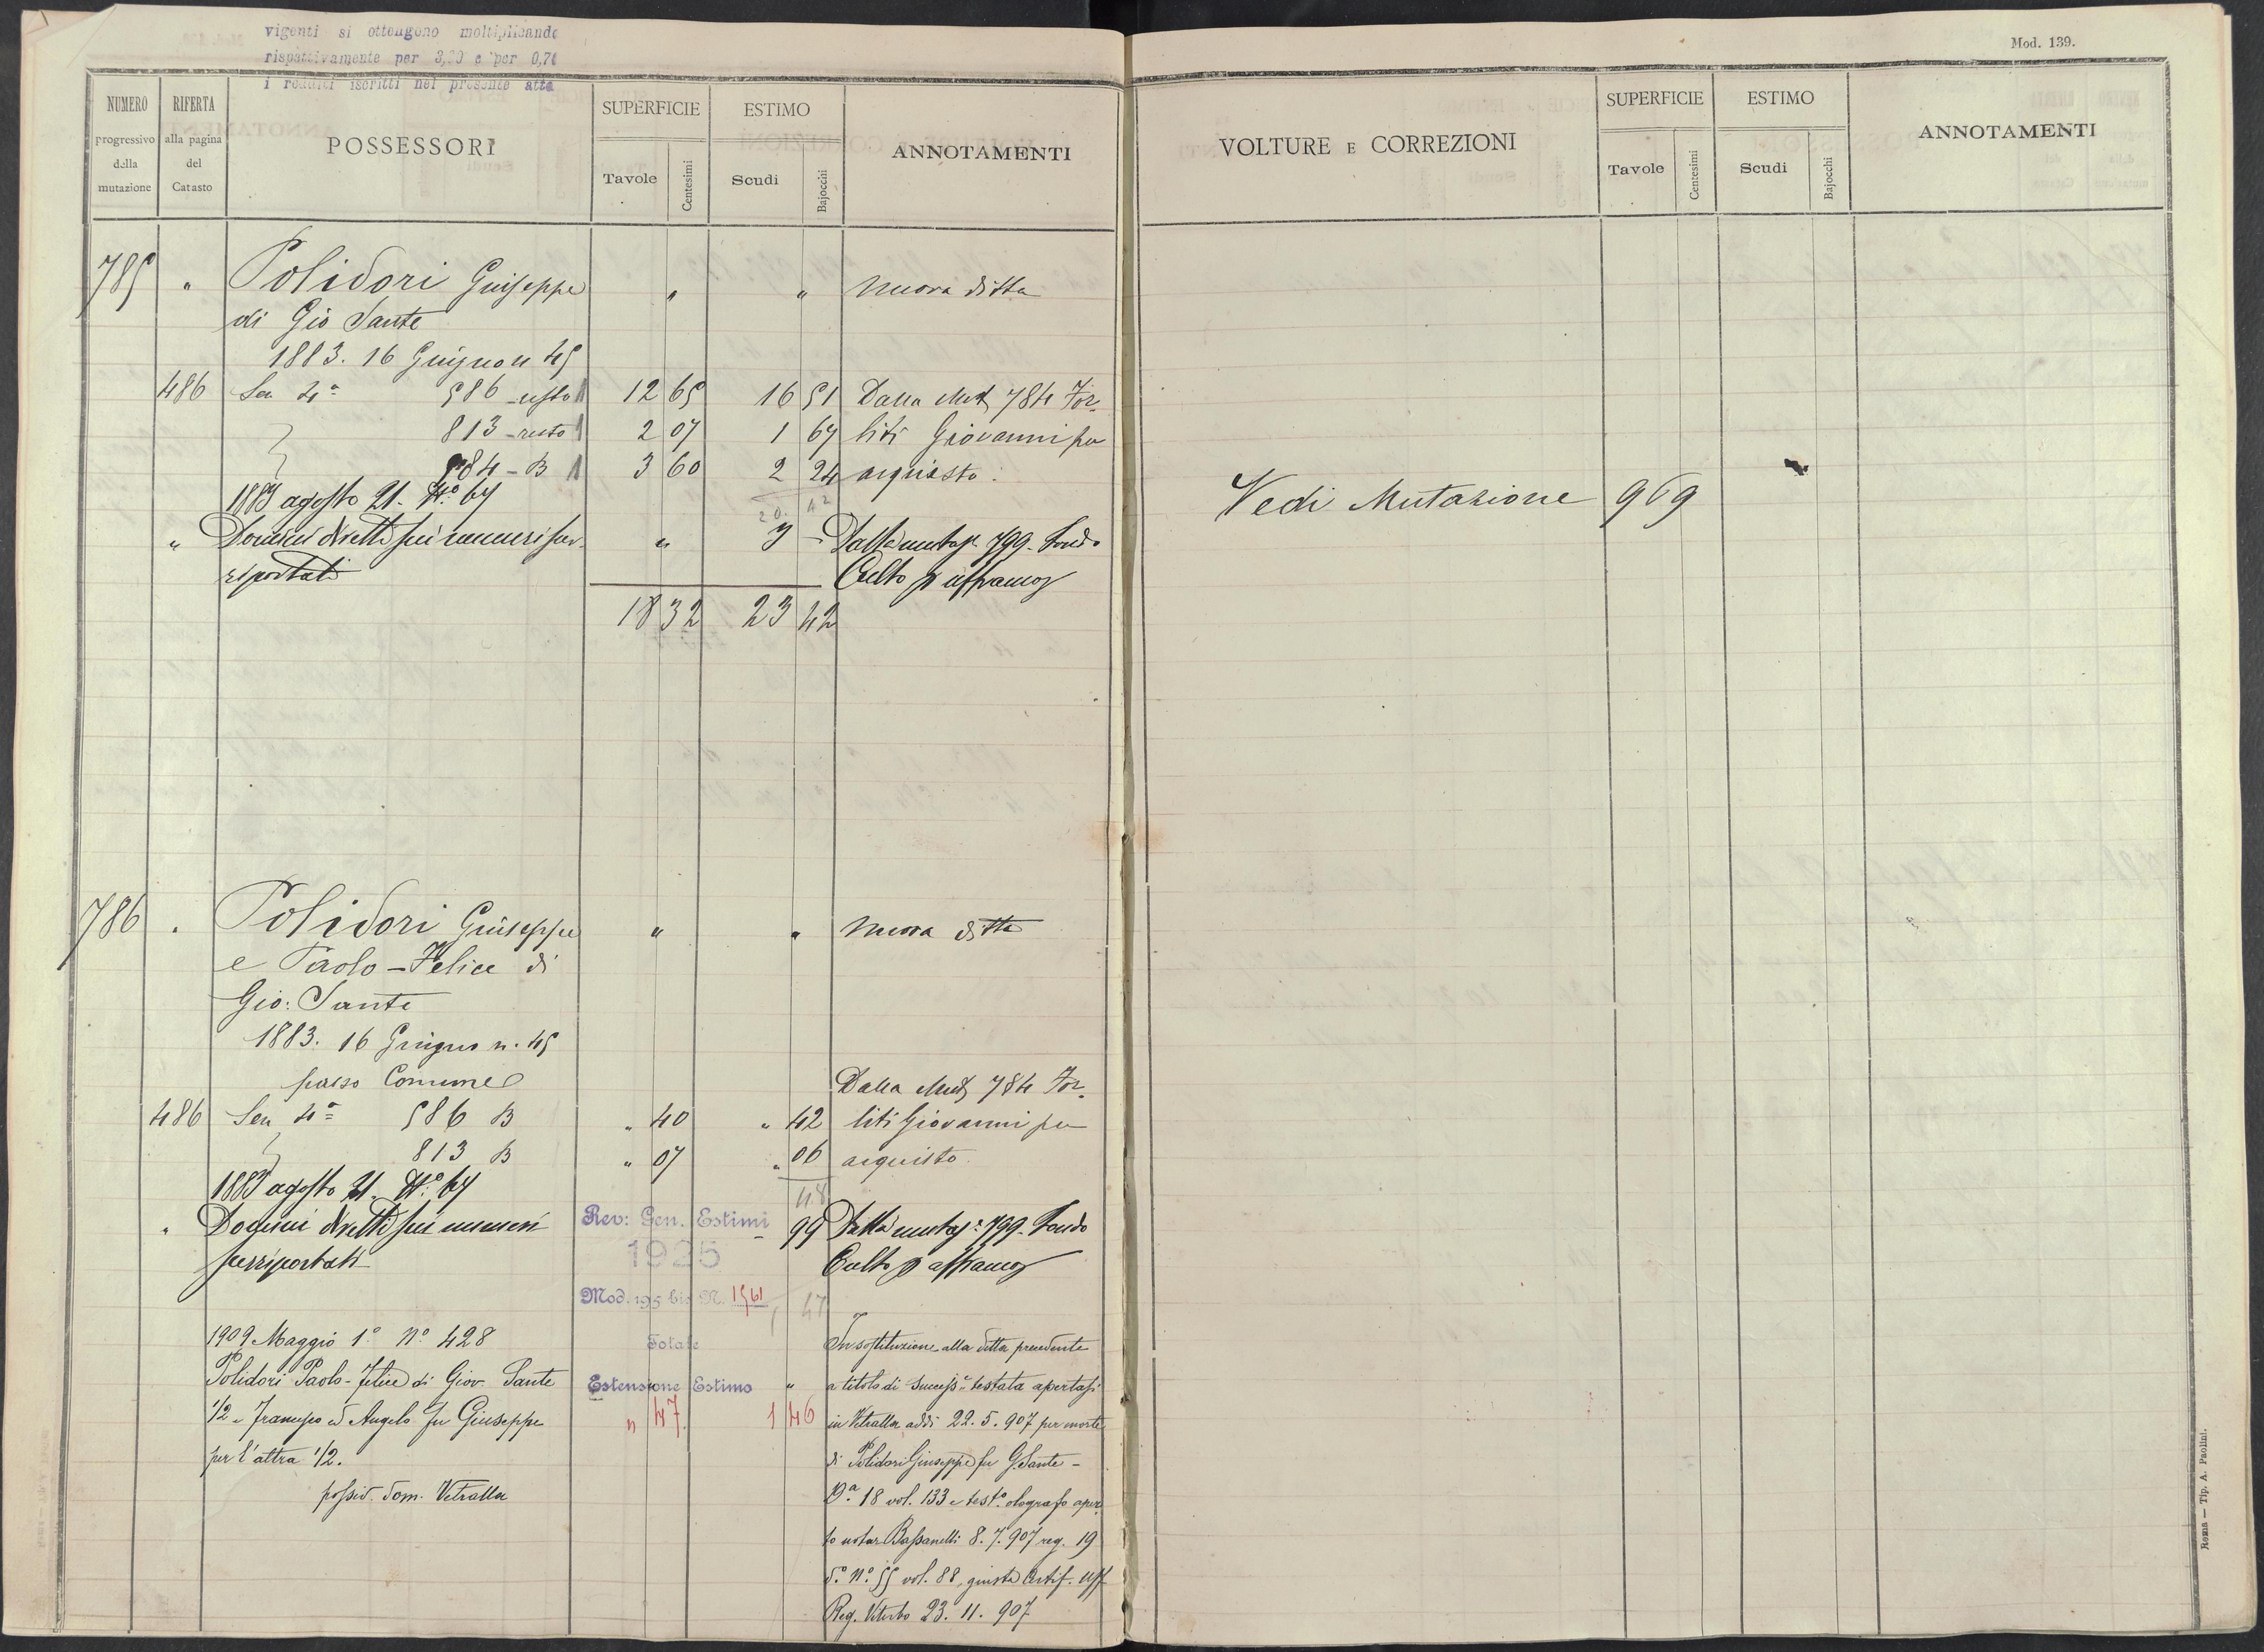 vigenti si ottengono moltiplicando
rispettivamente per 3,20 e per 0,70
i redditi iscritti nel presente atto
Mod. 139.
NUMERO progressivo della mutazione
RIFERTA alla pagina del Catasto
POSSESSORI
SUPERFICIE
Tavole Centesimi
ESTIMO
Scudi Bajocchi
ANNOTAMENTI
VOLTURE E CORREZIONI
SUPERFICIE
Tavole Centesimi
ESTIMO
Scudi Bajocchi
ANNOTAMENTI
785 " Polidori Giuseppe " " nuova ditta
di Gio Sante
1883. 16 Giugno n 45
486 Sez 4ª 586 resto 12 65 16 51 Dalla Mut 784 For
813 resto 2 07 1 67 liti Giovanni per
984 - B 3 60 2 24 acquisto.
20. 42
1883 agosto 21. N.º 67
" Domini diretti sui numeri sur " 3 - Dalla mutaz. 799. Fondo
riportati Culto p affrancaz
18 32 23 42
Vedi Mutazione 969
786 " Polidori Giuseppe " " nuova ditta
e Paolo-Felice di
Gio: Sante
1883. 16 Giugno n. 45
passo Comune Dalla Mut 784 For
486 Sez 4ª 586 B " 40 " 42 liti Giovanni per
813 B " 07 " 06 acquisto.
48
1883 agosto 21. N.º 67
" Domini diretti sui numeri - 99 Dalla mutaz. 799. Fondo
surriportati Culto p affrancaz
Rev: Gen. Estimi
1925
Mod. 195 bis N. 1561
47
1909 Maggio 1º Nº 428 Totale In sostituzione alla ditta precedente
Polidori Paolo-Felice di Giov. Sante Estensione Estimo " a titolo di success.e testata apertasi
1/2 e Francesco ed Angelo fu Giuseppe " 47. 1 46 in Vetralla addì 22. 5. 907 per morte
per l'altra 1/2. di Polidori Giuseppe fu G. Sante -
possid. dom. Vetralla Dª. 18 vol. 133 e test.º olografo aper
to notar Bassanelli 8. 7. 907 reg. 19
dº Nº 55 vol. 88, giusta Certif. Uff
Reg. Viterbo 23. 11. 907
Roma — Tip. A. Paolini.